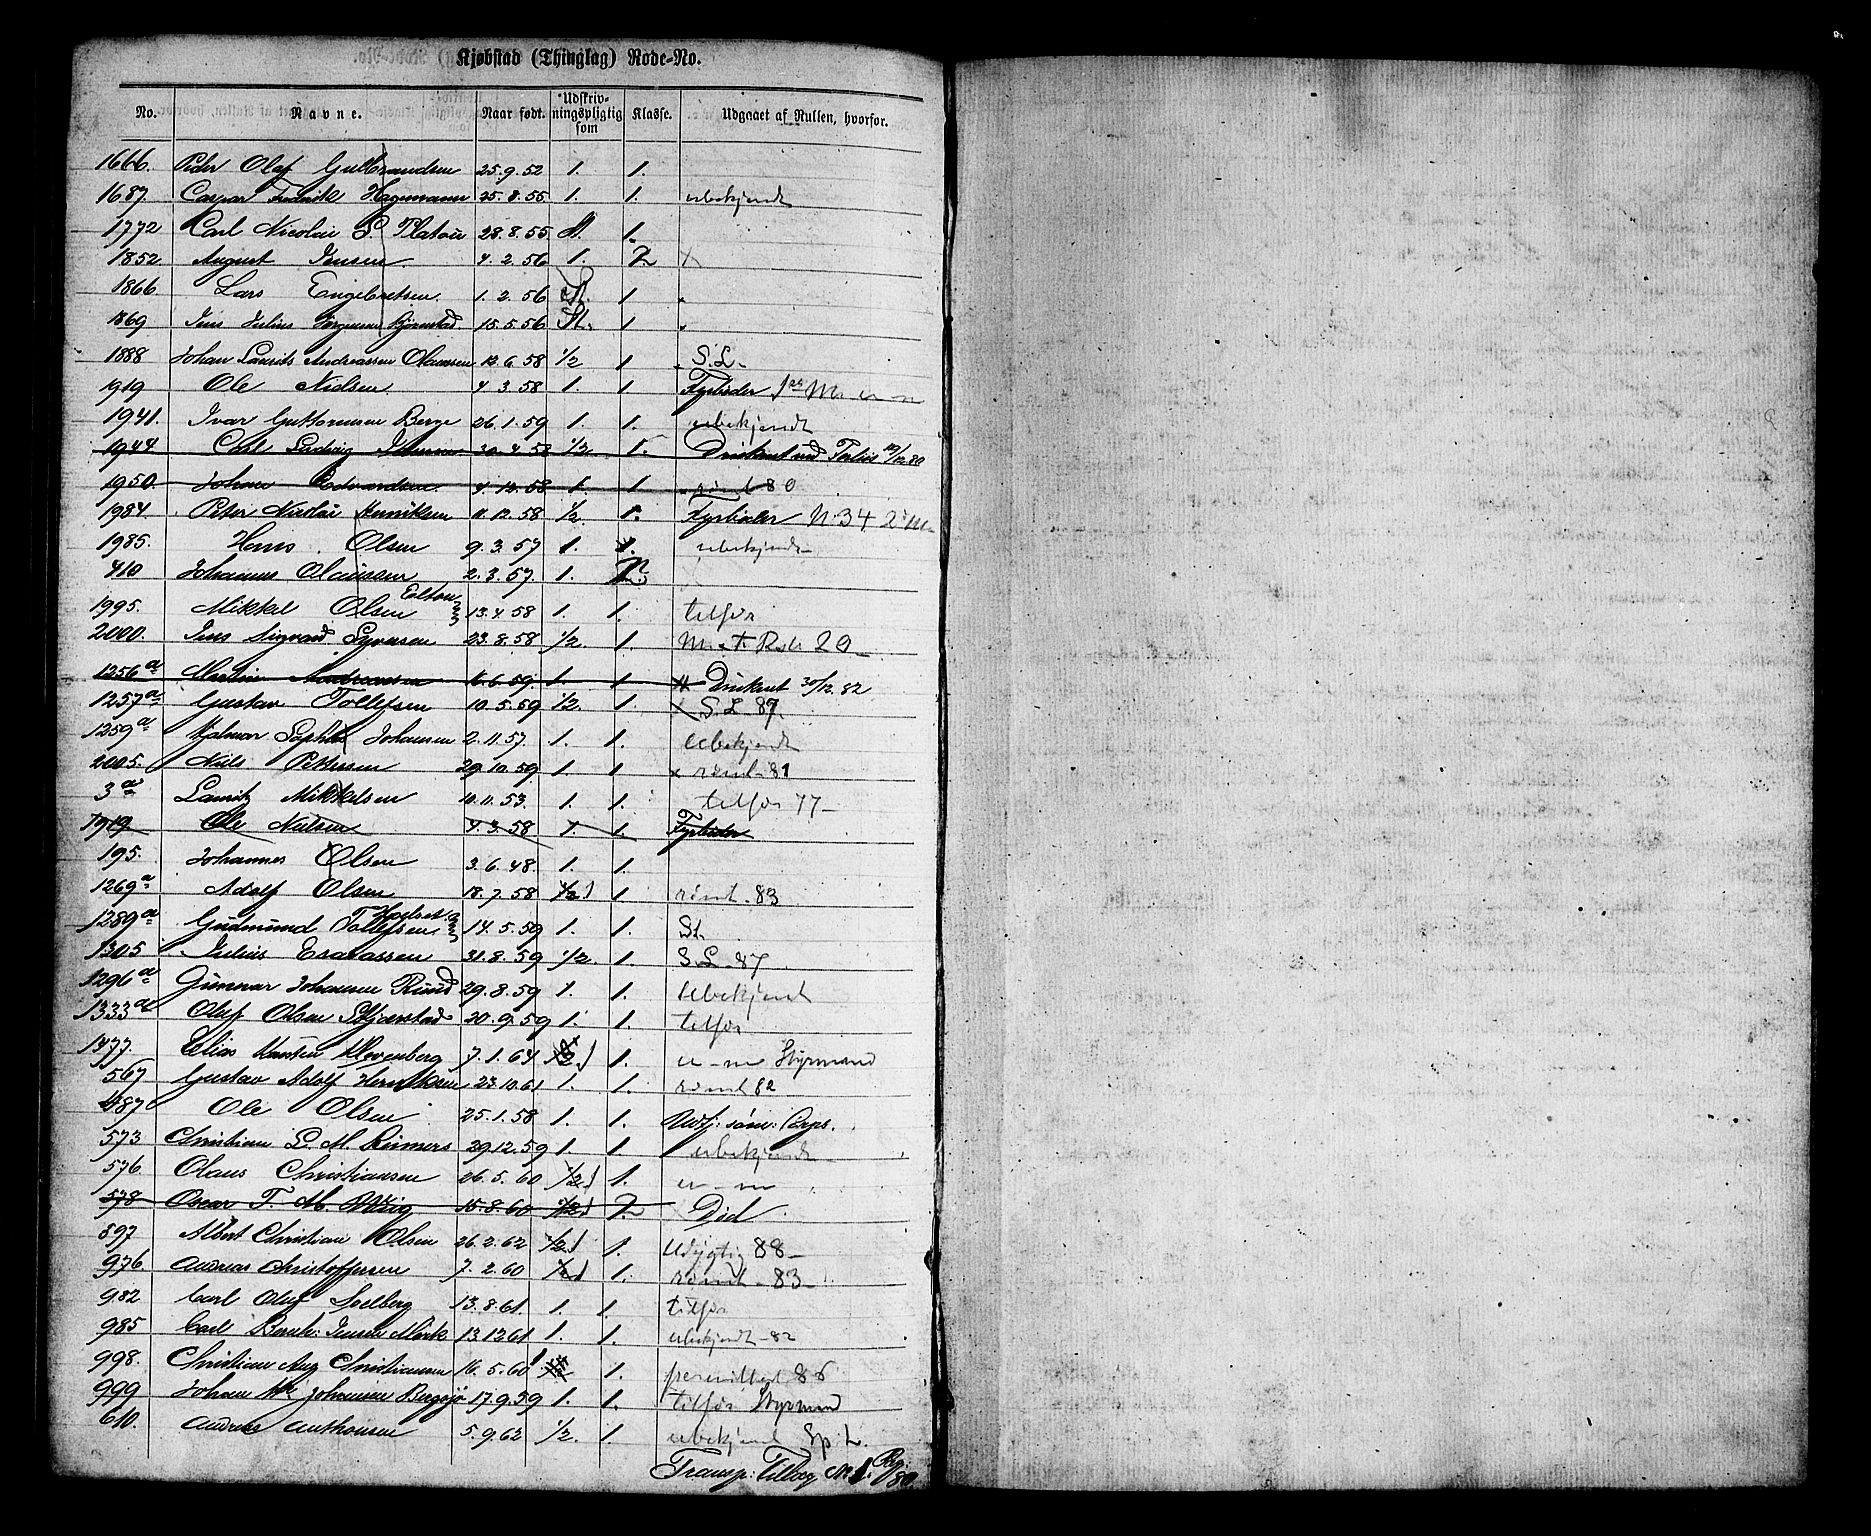 Kjøbstad (Thinglag) Rode-No.
No. Navne. Naar født. Udskrivningspligtig som Klasse. Udgaaet af Rullen, hvorfor.
1666. Peder Olaf Gulbrandsen 25.9.52 1. 1.
1687. Caspar Fredrik Hagemann 25.8.55. 1. 1. ubekjendt
1772 Carl Nicolai S. Platou 28.8.55. St. 1.
1852. August Jensen. 4.2.56 1. 2
1866 Lars Engebretsen. 1.2.56 St. 1
1869 Jens Julius Jørgensen Bjørnstad 15.5.56 St. 1
1888 Johan Laurits Andreassen Olaussen 12.6.58 1/2 1 S.L.
1919 Ole Nielsen. 4.3.58 1. 1. Fyrbøder
1941. Ivar Guttormsen Berge 26.1.59 1. 1. ubekjendt
1944 Carl Ludvig 30.4.58 1/2 1. Druknet ved 80
1950. Johan Edvardsen. 4.12.58 1. 1 rømt 80
1984. Peter Nicolai Henriksen 11.12.58 1/2 1. Fyrbøder N. 34
1985. Hans Olsen 9.3.57 1. 1. ubekjendt
410 Johannes Olaussen 2.3.57. 1.
1995. Mikkel Olsen 13.4.58 1. 1. tilfør
2000. Jens Sigvard Syversen 23.8.58 1/2. 1.
1256 a Martin Andreassen 6.6.59. 1. 1 Druknet 30/12.82
1257 a Gustav Tollefsen 10.5.59 1/2. 1. S.L. 87.
1259 a Hjalmar Sophus Johansen 2.11.57. 1. 1. Ubekjendt
2005. Niels Pettersen 29.10.59 1. 1 x rømt 81
3 a Lauritz Mikkelsen 10.11.53. 1. 1. tilfør 77
1919 Ole Nielsen 4.3.58 1. 1. Fyrbøder
195. Johannes Olsen 3.6.48. 1. 1.
1269 a Adolf Olsen 18.7.58 1/2 1 1. rømt 83
1289 a Gudmund Tollefsen 14.5.59 1. 1. St.
1305 Julius Esaiassen 31.8.59 1/2. 1. S.L. 87
1296 a Gunnar Johansen Ruud 29.8.59 1. 1. Ubekjendt
1333 a Oluf Olsen Skjærstad 20.9.59 1. 1. tilfør
1377. Elias Karsten Klovenberg 7.1.64 1. Styrmand
567 Gustav Adolf Henriksen 23.10.61 1. 1. rømt 82
487 Ole Olsen 25.1.58 1. 1. Udsk: søm: Corps.
573 Christian L. M. Reimers 29.12.59 1. 1. ubekjendt
576 Olaus Christiansen 26.5.60 1/2 1 1.
578 Oscar T. M. Wiig 15.8.60 1/2 1 2. Død
897 Albert Christian Olsen 26.2.62 1/2 1 1. Udygtig 88
976. Andreas Christoffersen 7.2.60 1/2 1 1. rømt 83
982 Carl Oluf Solberg 13.8.61. 1. 1. tilfør
985 Carl Bernh: Jensen Mørk 13.12.61 1. 1. ubekjendt 82
998. Christian Aug Christiansen 16.5.60 1 1. permitteret 86
999 Johan Johansen Bergsjø 17.9.59 1. 1. tilfør Styrmand
610. Andreas Anthonsen 5.9.62 1/2. 1. ubekjendt
Transp: Tillæg No 1.